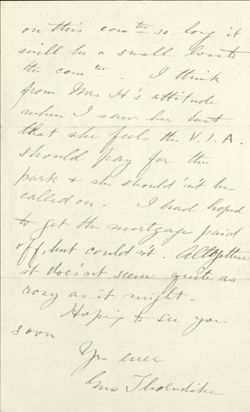 on this com^tee so long it
will be a small loss to
the com^tee - I think
from Mrs H's attitude
when I saw her last
that she feels the V.I.A.
should pay for the
park & she shouldn't be
called on - I had hoped
to get the mortgage paid
off, but couldn't. Altogether
it doesn't seem quite as
rosy as it might -
Hoping to see you
soon
Yrs ever
Thorndike